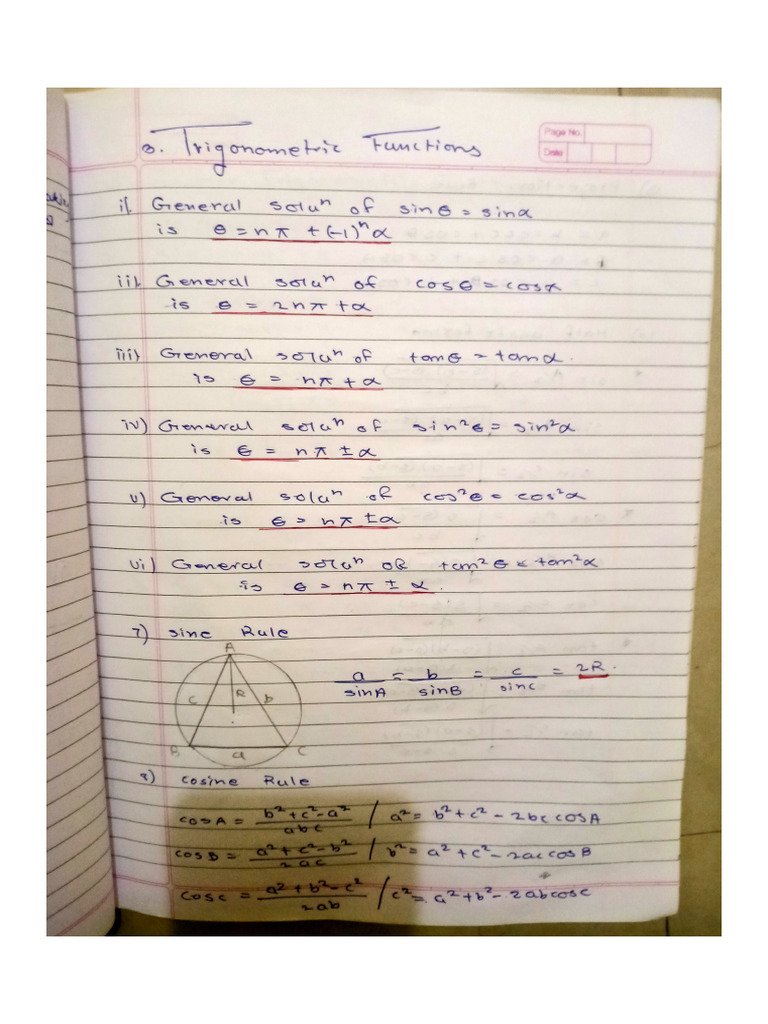 3. Trigonometric Functions
Page No.
Date
i) General soluⁿ of sinθ = sinα
is θ = nπ + (-1)ⁿα
ii) General soluⁿ of cosθ = cosα
is θ = 2nπ + α
iii) General soluⁿ of tanθ = tanα.
is θ = nπ + α
iv) General soluⁿ of sin²θ = sin²α
is θ = nπ ± α
v) General soluⁿ of cos²θ = cos²α
is θ = nπ ± α
vi) General soluⁿ of tan²θ = tan²α
is θ = nπ ± α.
7) sine Rule
A
c R b
B a C
a/sinA = b/sinB = c/sinC = 2R.
8) cosine Rule
cosA = b²+c²-a²/abc / a² = b²+c²-2bccosA
cosB = a²+c²-b²/2ac / b² = a²+c²-2accosB
cosc = a²+b²-c²/2ab / c² = a²+b²-2abcosc